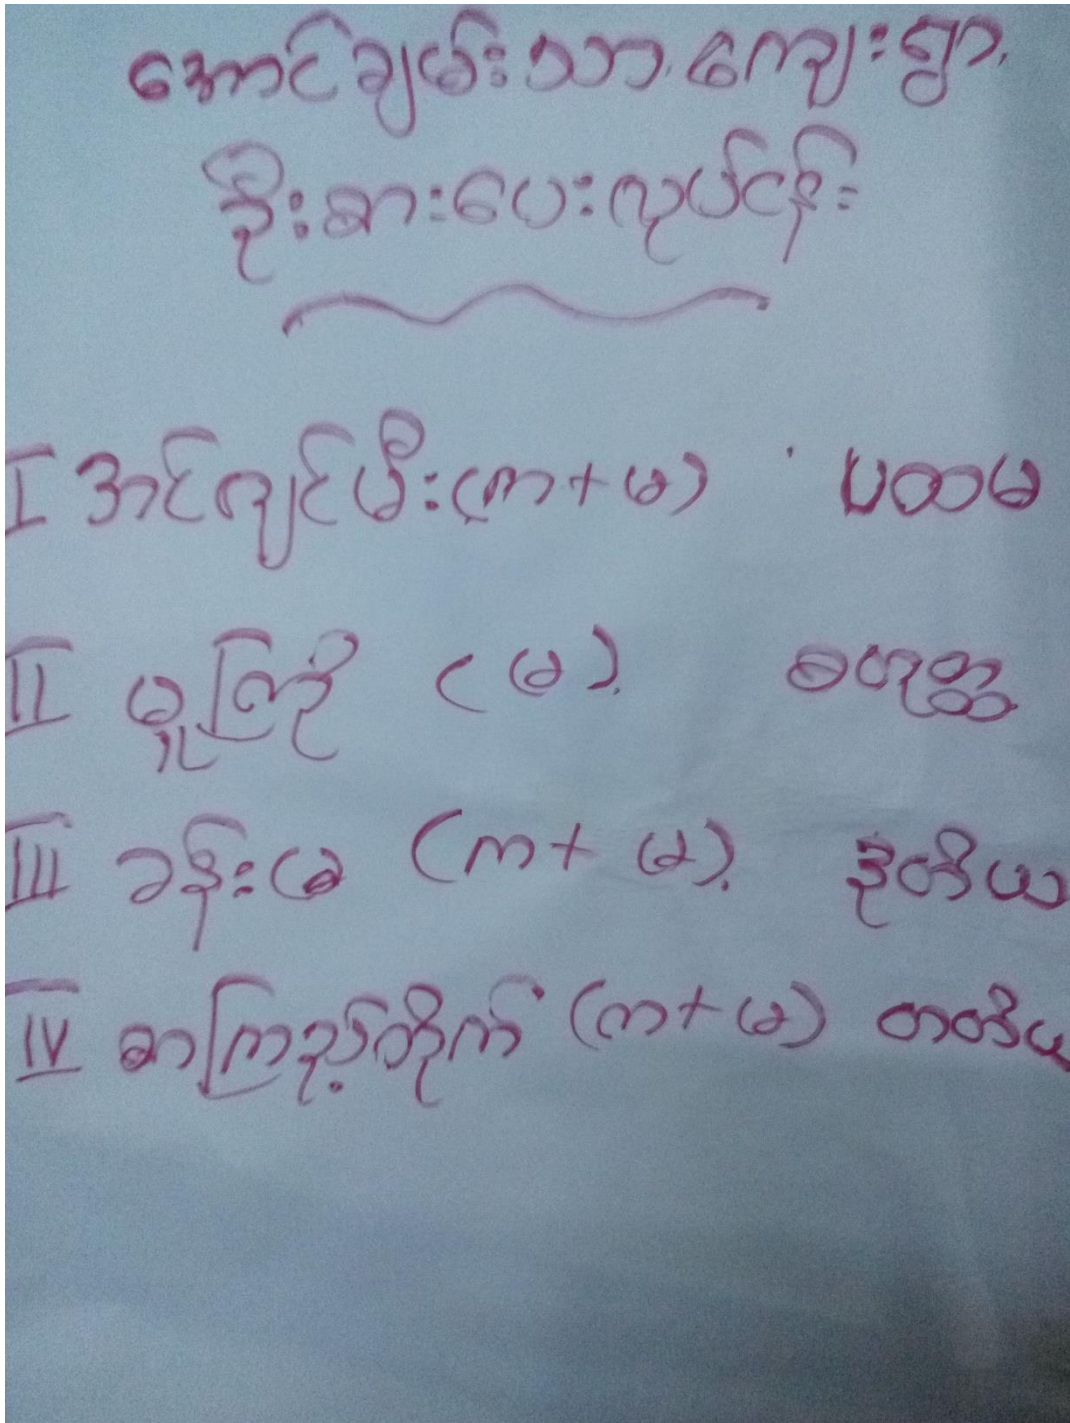 အောင်ချမ်းသာ ကျေးရွာ
ဦးစားပေးလုပ်ငန်း
I အင်ဂျင်မီး(က+မ) ပထမ
II မူကြို (မ) စတုတ္ထ
III ခန်းမ (က+မ) ဒုတိယ
IV စာကြည့်တိုက် (က+မ) တတိယ